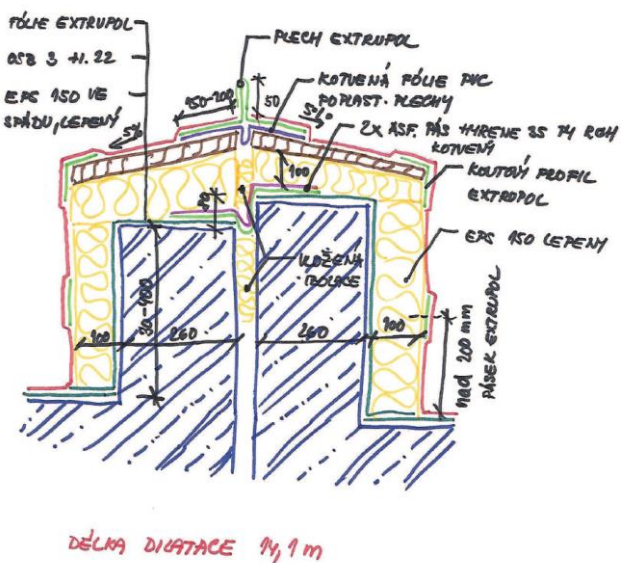 FÓLIE EXTRUPOL
OSB 3 tl. 22
EPS 150 VE
SPÁDU, LEPENÝ
PLECH EXTRUPOL
KOTVENÁ FÓLIE PVC
POPLAST. PLECHY
2x ASF. PÁS
KOTVENÝ
KOUTOVÝ PROFIL
EXTROPOL
EPS 150 LEPENÝ
VLOŽENÁ
IZOLACE
5%
150-200
50
5%
100
30-400
100
260
260
100
nad 200 mm
PÁSEK EXTRUPOL
DÉLKA DILATACE 14,1 m